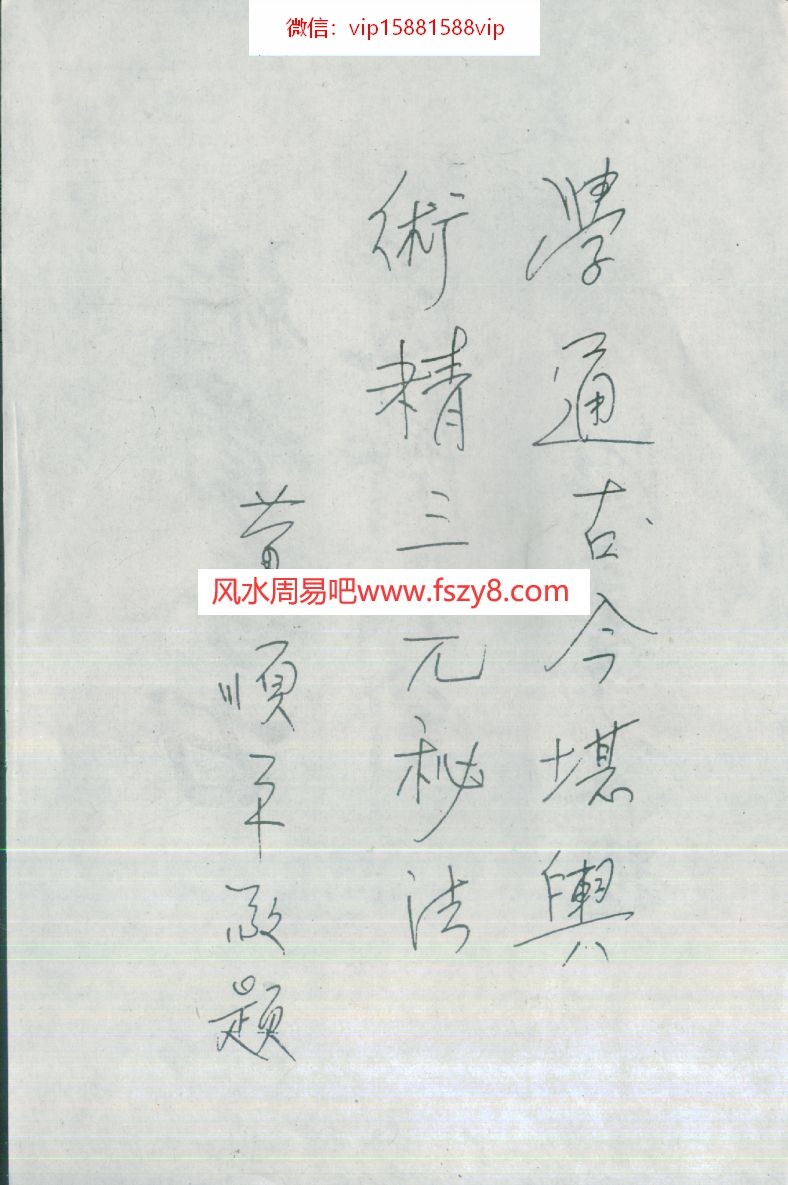 微信：vip15881588vip
學通古今堪輿
術精三元秘法
順平敬題
风水周易吧www.fszy8.com